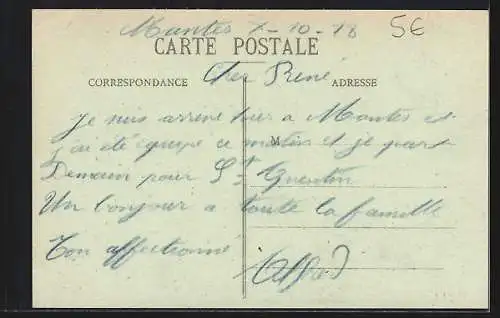 Mantes 7-10-18
5€
CARTE POSTALE
CORRESPONDANCE
ADRESSE
Cher René
Je suis arrivé hier a Mantes et
M
j'ai été équipé ce matin et je pars
Demain pour St Quentin
Un bonjour a toute la famille
Ton affectionné
Alfred